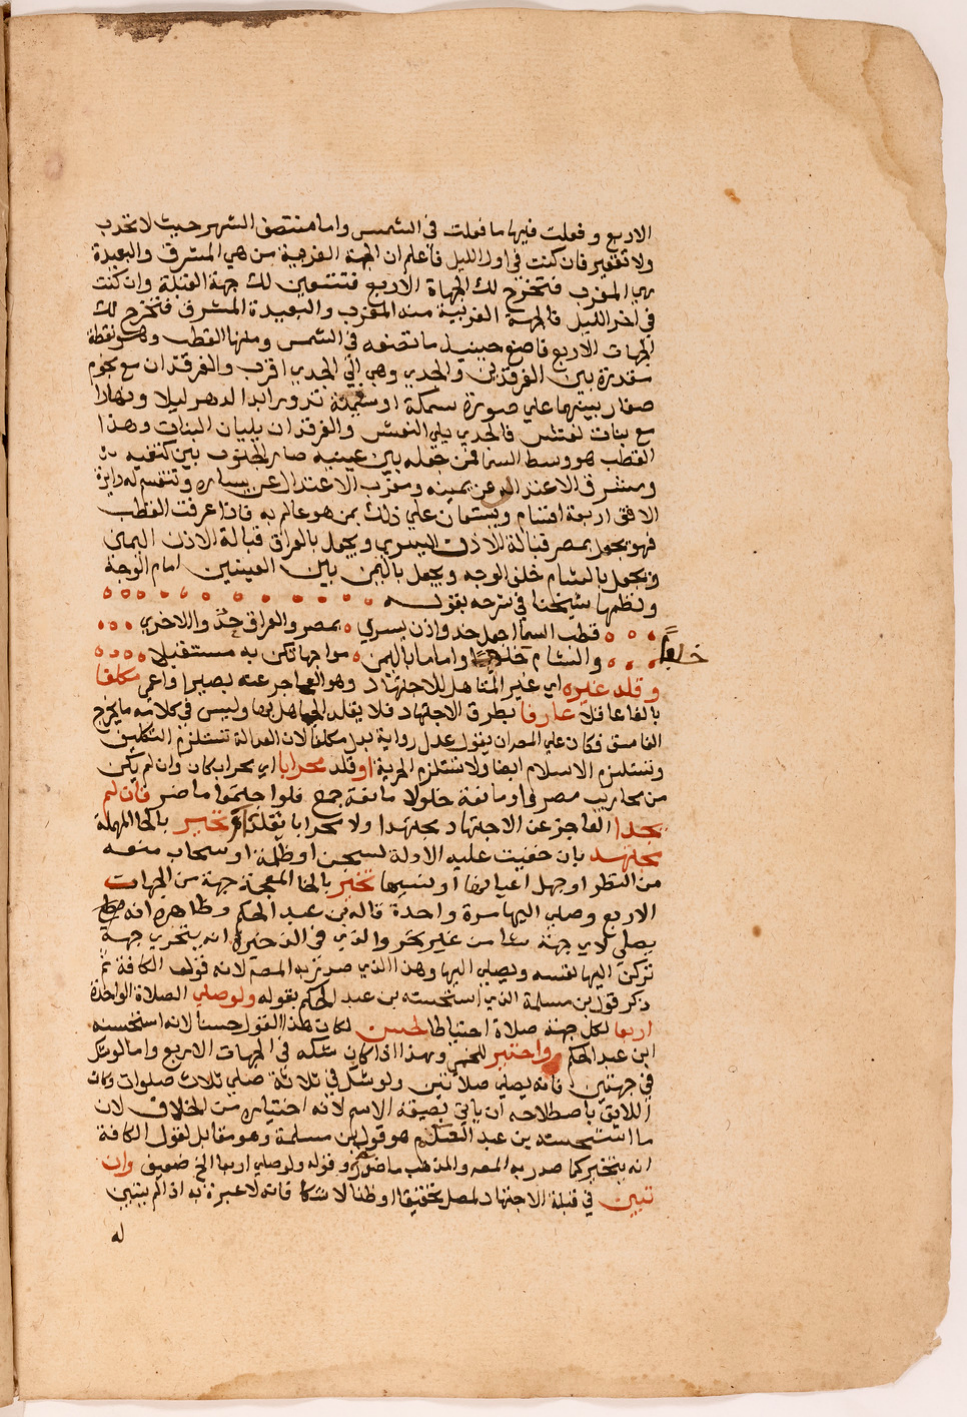 الاربع وفعلت فيها ما فعلت في الشمس واما منتصف الشهر حيث لا تخرب
ولا تقصير فان كنت في اول الليل فاعلم ان الجهة القريبة من هي المشرق والبعيدة
هي المغرب فتخرج لك الجهاة الاربع فتتعين لك جهة القبلة وان كنت
في اخر الليل فالجهة القريبة منه المغرب والبعيدة المشرق فتخرج لك
الجهات الاربع فاصنع حينيذ ما تصنعه في الشمس ومنها القطب وهو نقطة
مقدرة بين الفرقدين والجدي وهي الي الجدي اقرب والفرقدان مع نجوم
صغار بينهما علي صورة سمكة او تدور ابدا الدهر ليلا ونهارا
مع بنات نعش فالجدي يلي النعش والفرقدان يليان البنات وهذا
القطب هو وسط السما فمن جعله بين عينيه صار الجنوب بين كتفيه
ومشرق الاعتدال عن يمينه ومغرب الاعتدال عن يساره وتنقسم له دايرة
الافق اربعة اقسام ويستعان علي ذلك بمن هو عالم به فاذا عرفت القطب
فهو يجعل بمصر قبالة الاذن اليسري ويجعل بالعراق قبالة الاذن اليمني
ويجعل بالشام خلف الوجه ويجعل باليمن بين العينين امام الوجه
ونظمها شيخنا في شرحه بقوله
قطب السما اجعل حذو اذن يسري بمصر والعراق حذو الاخري
والشام خلفا واماما باليمن مواجها تكن به مستقبلا
خلفاً
وقلد غيره اي غير المتاهل للاجتهاد وهو العاجر عنه بصيرا واعمي مكلفا
بالغا عاقلا عارفا بطرق الاجتهاد فلا يقلد الجاهل بها وليس في كلامه ما يخرج
الفاسق فكان علي المص ان يقول عدل رواية بدل مكلفا لان العدالة تستلزم التكليف
وتستلزم الاسلام ايضا ولا تستلزم الحرية او قلد محرابا اي محراب كان وان لم يكن
من محاريب مصر فاو مانعة خلو لا مانعة جمع فلو اجتمعا ما ضر فان لم
يجد العاجز عن الاجتهاد مجتهدا ولا محرابا يقلده او تحير بالحا المهملة
مجتهد بان خفيت عليه الادلة لسجن او ظلمة او سحاب منعه
من النظر او جهل اعيانها او نسيها تخير بالخا المعجمة جهة من الجهات
الاربع وصلي اليها مرة واحدة قاله بن عبد الحكم وظاهره انه
يصلي لاي جهة شا من غير تحر والذي في الذخيرة انه يتحري جهة
تركن اليها نفسه ويصلي اليها وهذا الذي صدر به المص لانه قول الكافة ثم
ذكر قول بن مسلمة الذي استحسنه بن عبد الحكم بقوله ولو صلي الصلاة الواحدة
اربعا لكل جهة صلاة احتياطا لحسن لكان هذا القول حسنا لانه استحسنه
ابن عبد الحكم واختير للخمي وهذا اذا كان شكه في الجهات الاربع واما لو شك
في جهتين فانه يصلي صلاتين ولو شك في ثلاثة صلي ثلاث صلوات وكان
اللايق باصطلاحه ان ياتي بصيغة الاسم لانه اختياره من الخلاف لان
ما استحسنه بن عبد الحكم هو قول بن مسلمة وهو مقابل لقول الكافة
انه يتخير كما صدر به المص والمذهب ما وقوله ولو صلي اربعا الخ ضعيف وان
تبين في قبلة الاجتهاد لمصل تحقيقا او ظنا لا شكا فانه لا عبرة به اذا لم يتبين
له